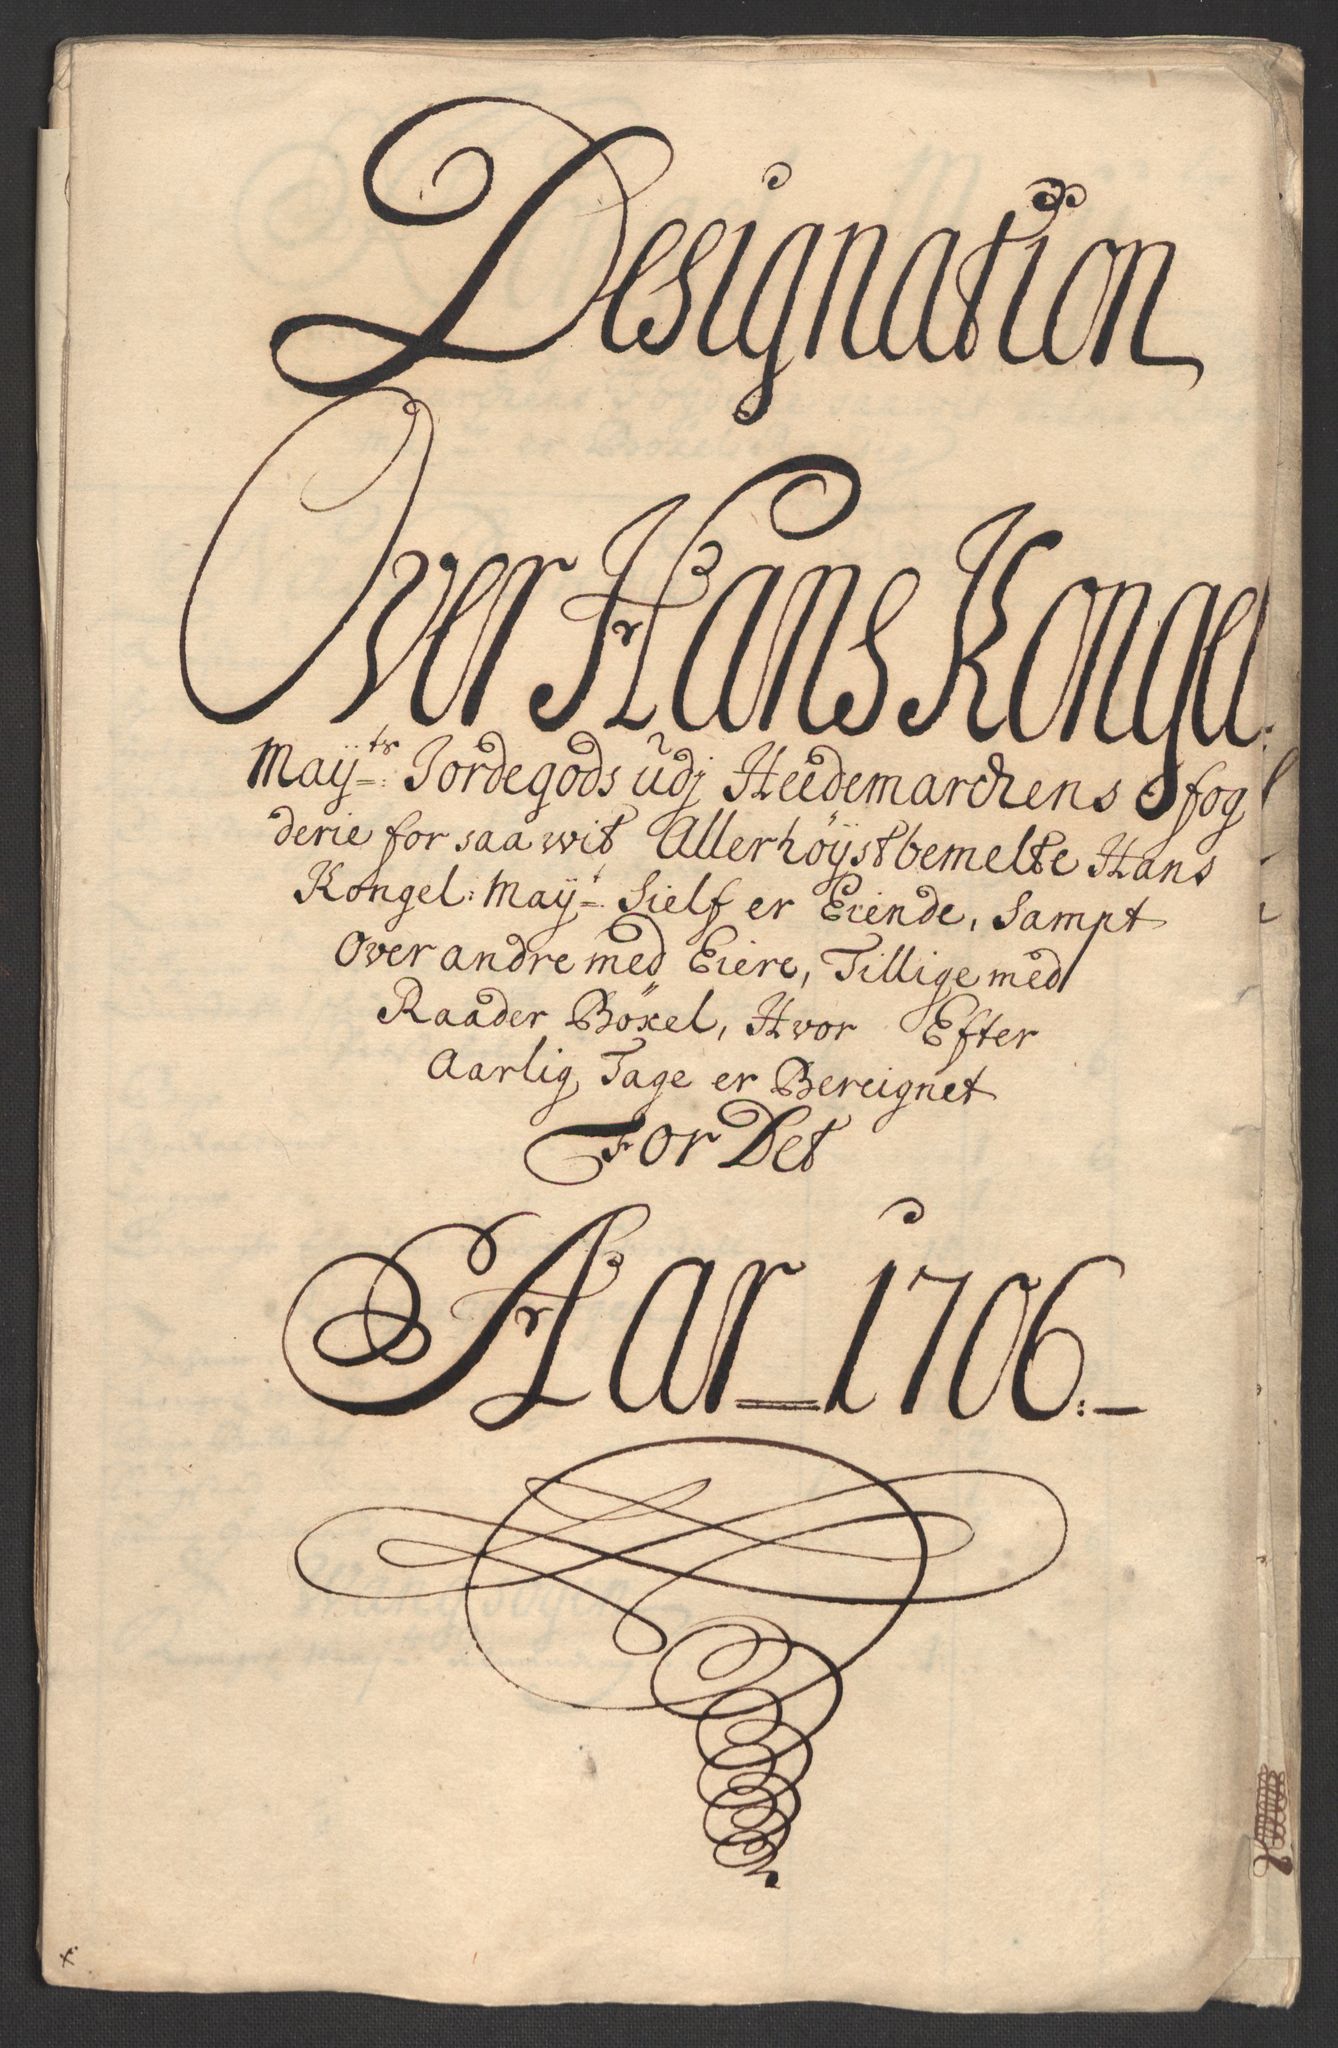 Designation
Over Hans Kongel:
Maÿ:ts Jordegods udj Heedemarchens fog
derie for saa wit Allerhöÿstbemelte Hans
Kongel: Maÿ:t Sielf er Eiende, Sampt
Over andre med Eiere, Tillige med
Raader Böxel, Hvor Efter
Aarlig Tage er Bereignet
For Det
Aar 1706.